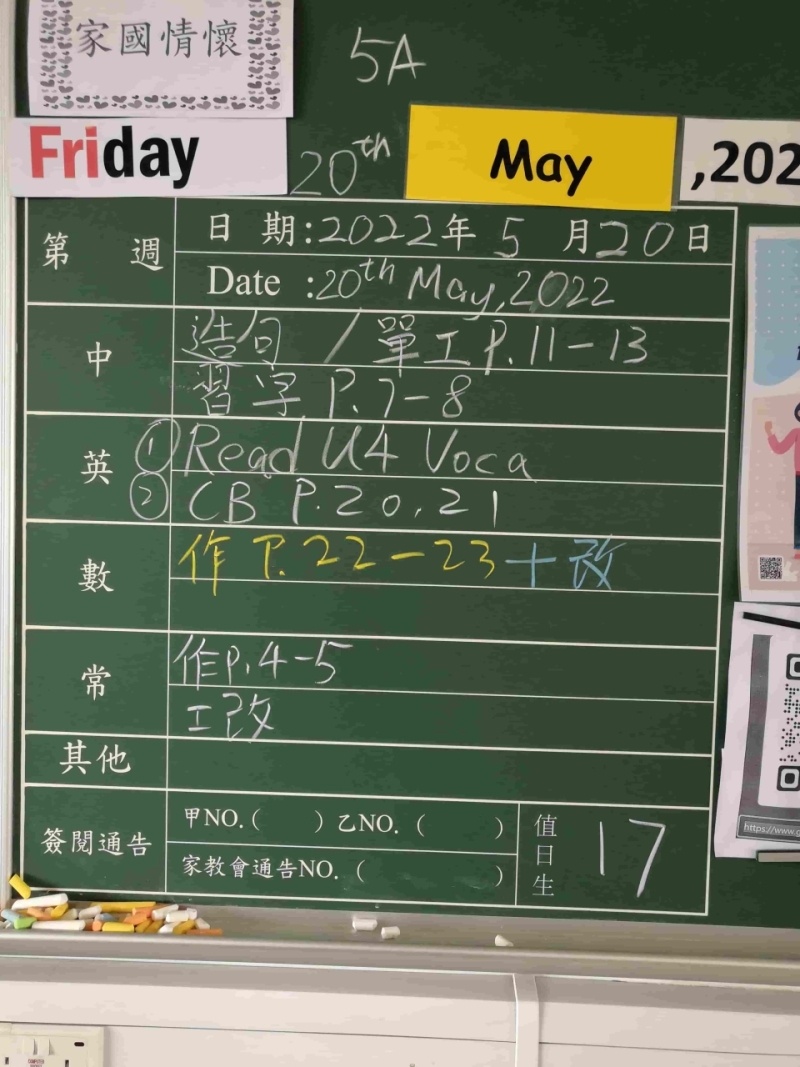 家國情懷
5A
Friday 20th May ,202
第 週
日 期:2022年 5 月20日
Date :20th May, 2022
中
造句 / 單工P.11-13
習字 P.7-8
英
① Read U4 Voca
② CB P.20,21
數
作 P.22-23+改
常
作P.4-5
工改
其他
簽閱通告
甲NO.( ) 乙NO.( )
家教會通告NO.( )
值日生
17
https://www.g